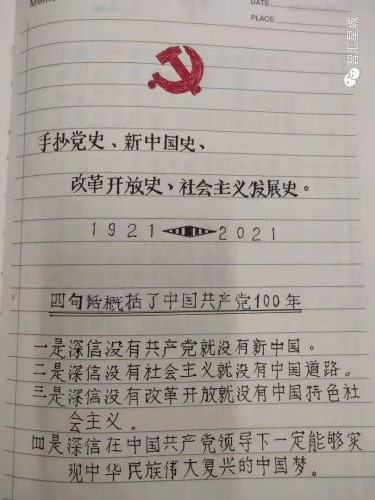 DATE
PLACE
智汇星城
手抄党史、新中国史、
改革开放史、社会主义发展史。
1921 2021
四句话概括了中国共产党100年
一是深信没有共产党就没有新中国。
二是深信没有社会主义就没有中国道路。
三是深信没有改革开放就没有中国特色社
会主义。
四是深信在中国共产党领导下一定能够实
现中华民族伟大复兴的中国梦。